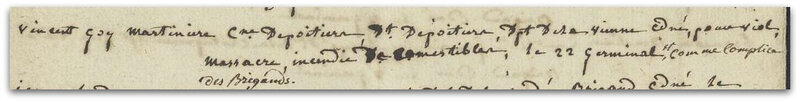 Vincent Goy Martiniere Cne Depoitiers Dt Depoitiers, Dpt Dela Vienne Cdné, pour viol,
massacre, incendie De comestibles, le 22 Germinal, comme Complice
des Brigands.
Brigand Cdné le